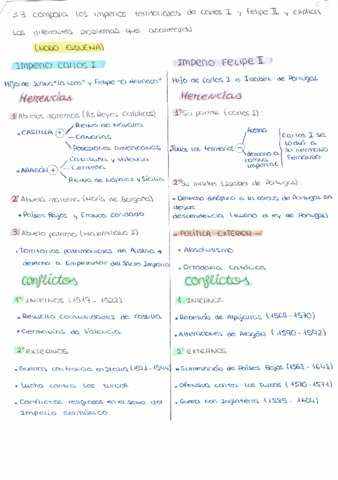 3.3 compara los imperios territoriales de Carlos I y Felipe II y explica
los diferentes problemas que acontecieron
(MODO ESQUEMA)
IMPERIO CARLOS I
Hijo de Juana "la Loca" y Felipe "el Hermoso"
Herencias
1º Abuelos maternos (los Reyes Católicos)
• CASTILLA
Reino de Navarra
Canarias
Posesiones americanas
• ARAGÓN
Cataluña y Valencia
Cerdeña
Reino de Nápoles y Sicilia
2º Abuela paterna (María de Borgoña)
• Países Bajos y Franco Condado
3º Abuelo paterno (Maximiliano I)
• Territorios patrimoniales de Austria +
derecho a Emperador del Sacro Imperio
conflictos
1º INTERNOS (1519 - 1522)
• Revuelta comunidades de Castilla
• Germanías de Valencia
2º EXTERNOS
• Guerra con Francia en Italia (1521 - 1544)
• Lucha contra los turcos
• Conflictos religiosos en el seno del
Imperio Germánico.
IMPERIO FELIPE II
Hijo de Carlos I e Isabel de Portugal
Herencias
1º Su padre (Carlos I):
Todos los territorios
Austria
derecho a corona imperial
Carlos I se
lo dió a
su hermano
Fernando
2º Su madre (Isabel de Portugal):
• Derecho dinástico a la corona de Portugal sin
descendencia (muere el rey de Portugal)
- POLÍTICA EXTERIOR -
• Absolutismo
• Ortodoxia católica
conflictos
1 INTERNOS
• Rebelión de Alpujarras (1568 - 1570)
• Alteraciones de Aragón (1590 - 1592)
2 EXTERNOS
• Sublevación de Países Bajos
• Ofensiva contra los turcos (1570 - 1571)
• Guerra con Inglaterra (1585 - 1604)